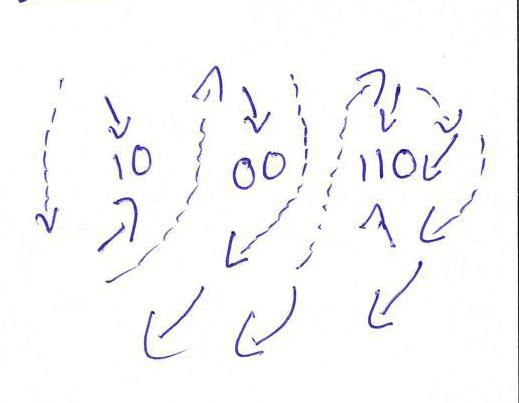 10 00 110